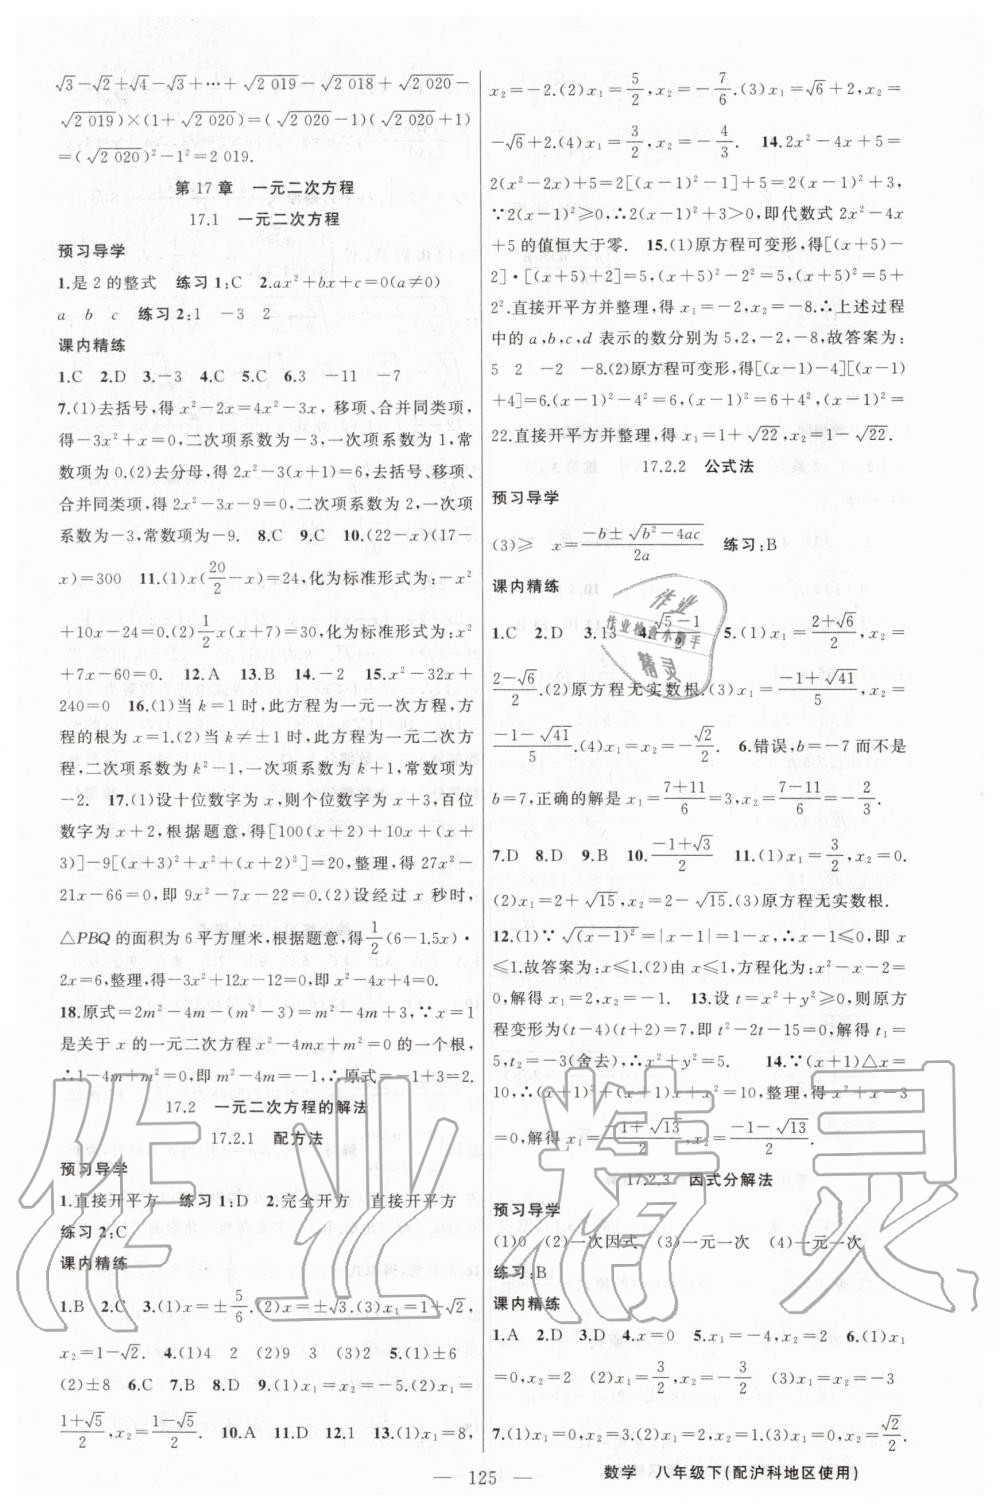 √3−√2+√4−√3+⋯+√2 019−√2 018+√2 020−
√2 019)×(1+√2 020)=(√2 020−1)(√2 020+1)
=(√2 020)²−1²=2 019.
第17章 一元二次方程
17.1 一元二次方程
预习导学
1.是2的整式 练习1:C 2.ax²+bx+c=0(a≠0)
a b c 练习2:1 −3 2
课内精练
1.C 2.D 3.−3 4.C 5.C 6.3 −11 −7
7.(1)去括号,得x²−2x=4x²−3x,移项、合并同类项,
得−3x²+x=0,二次项系数为−3,一次项系数为1,常
数项为0.(2)去分母,得2x²−3(x+1)=6,去括号、移项、
合并同类项,得2x²−3x−9=0,二次项系数为2,一次项
系数为−3,常数项为−9. 8.C 9.C 10.(22−x)(17−
x)=300 11.(1)x(20/2−x)=24,化为标准形式为:−x²
+10x−24=0.(2)1/2x(x+7)=30,化为标准形式为:x²
+7x−60=0. 12.A 13.B 14.−2 15.x²−32x+
240=0 16.(1)当k=1时,此方程为一元一次方程,方
程的根为x=1.(2)当k≠±1时,此方程为一元二次方
程,二次项系数为k²−1,一次项系数为k+1,常数项为
−2. 17.(1)设十位数字为x,则个位数字为x+3,百位
数字为x+2,根据题意,得[100(x+2)+10x+(x+
3)]−9[(x+3)²+x²+(x+2)²]=20,整理,得27x²−
21x−66=0,即9x²−7x−22=0.(2)设经过x秒时,
△PBQ的面积为6平方厘米,根据题意,得1/2(6−1.5x)·
2x=6,整理,得−3x²+12x−12=0,即x²−4x+4=0.
18.原式=2m²−4m−(m²−3)=m²−4m+3,∵x=1
是关于x的一元二次方程x²−4mx+m²=0的一个根,
∴1−4m+m²=0,即m²−4m=−1,∴原式=−1+3=2.
17.2 一元二次方程的解法
17.2.1 配方法
预习导学
1.直接开平方 练习1:D 2.完全开方 直接开平方
练习2:C
课内精练
1.B 2.C 3.(1)x=±5/6.(2)x=±√3.(3)x₁=1+√2,
x₂=1−√2. 4.(1)4 2 (2)9 3 (3)2 5.(1)±6
(2)±8 6.C 7.B 8.D 9.(1)x₁=x₂=−5.(2)x₁=
(1+√5)/2,x₂=(1−√5)/2. 10.A 11.D 12.1 13.(1)x₁=8,
x₂=−2.(2)x₁=5/2,x₂=−7/6.(3)x₁=√6+2,x₂=
−√6+2.(4)x₁=3/2,x₂=−4/3. 14.2x²−4x+5=
2(x²−2x)+5=2[(x−1)²−1]+5=2(x−1)²+3.
∵2(x−1)²≥0,∴2(x−1)²+3>0,即代数式2x²−4x
+5的值恒大于零. 15.(1)原方程可变形,得[(x+5)−
2]·[(x+5)+2]=5.(x+5)²−2²=5,(x+5)²=5+
2².直接开平方并整理,得x₁=−2,x₂=−8.∴上述过程
中的a,b,c,d表示的数分别为5,2,−2,−8,故答案为:
5 2 −2 −8.(2)原方程可变形,得[(x−1)−4][(x−1)
+4]=6.(x−1)²−4²=6,(x−1)²=6+4²,(x−1)²=
22.直接开平方并整理,得x₁=1+√22,x₂=1−√22.
17.2.2 公式法
预习导学
(3)≥ x=(−b±√(b²−4ac))/2a 练习:B
课内精练
1.C 2.D 3.13 4.(√5−1)/2 5.(1)x₁=(2+√6)/2,x₂=
(2−√6)/2.(2)原方程无实数根.(3)x₁=(−1+√41)/5,x₂=
(−1−√41)/5.(4)x₁=x₂=−√2/2. 6.错误,b=−7而不是
b=7,正确的解是x₁=(7+11)/6=3,x₂=(7−11)/6=−2/3.
7.D 8.D 9.B 10.(−1+√3)/2 11.(1)x₁=3/2,x₂=0.
(2)x₁=2+√15,x₂=2−√15.(3)原方程无实数根.
12.(1)∵√(x−1)²=|x−1|=1−x,∴x−1≤0,即x
≤1.故答案为:x≤1.(2)由x≤1,方程化为:x²−x−2=
0,解得x₁=2,x₂=−1. 13.设t=x²+y²≥0,则原方
程变形为(t−4)(t+2)=7,即t²−2t−15=0,解得t₁=
5,t₂=−3(舍去),∴x²+y²=5. 14.∵(x+1)△x=
10,∴(x+1)²+(x+1)x+x²=10,整理,得x²+x−3
=0,解得x₁=(−1+√13)/2,x₂=(−1−√13)/2.
17.2.3 因式分解法
预习导学
(1)0 (2)一次因式 (3)一元一次 (4)一元一次
练习:B
课内精练
1.A 2.D 3.D 4.x=0 5.x₁=−4,x₂=2 6.(1)x₁
=0,x₂=2 (2)x₁=3/2,x₂=−3/2 (3)x₁=x₂=−3
7.(1)x₁=0,x₂=3.(2)x₁=x₂=3.(3)x₁=0,x₂=√2/2.
— 125 —
数学 八年级下(配沪科地区使用)
作业精灵
作业
作业检查小助手
精灵